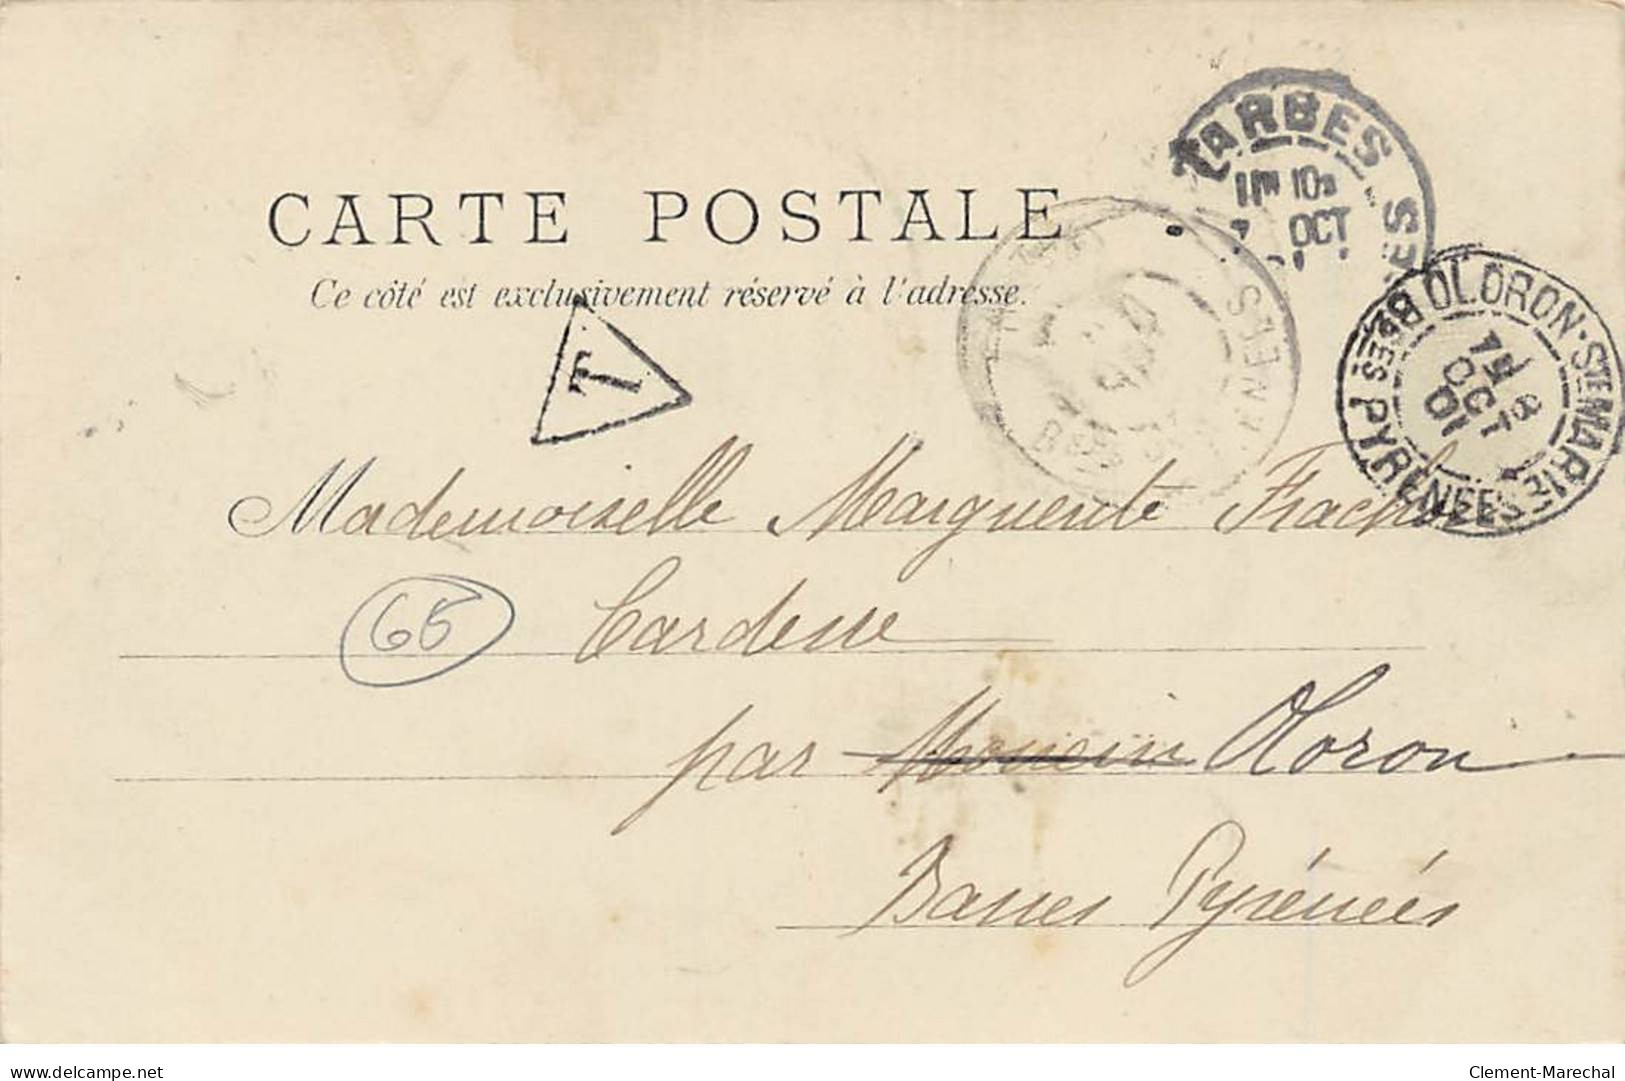 CARTE POSTALE
Ce côté est exclusivement réservé à l'adresse.
TARBES
10
OCT
OLORON-STE MARIE
BSES PYRENEES
8
OCT
01
T
Mademoiselle Marguerite
65
Cardesse
par Monein Oloron
Basses Pyrénées
delcampe.net
Clement-Marechal